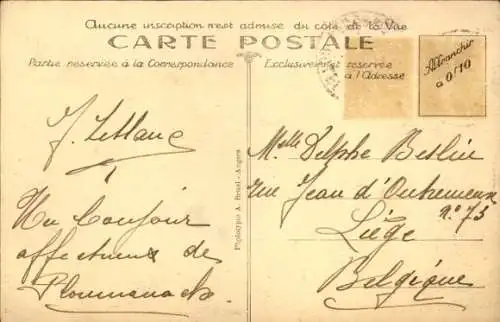 Aucune inscription n'est admise du côté de la Vue
CARTE POSTALE
Partie réservée à la Correspondance
Exclusivement réservée
à l'Adresse
Affranchir
à 0f10
J. Leblanc
Un bonjour
affectueux de
Ploumanach
Phototypie A. Bruel - Angers
Melle Delphe Beslin
rue Jean d'Outremeuse
n° 73
Liège
Belgique